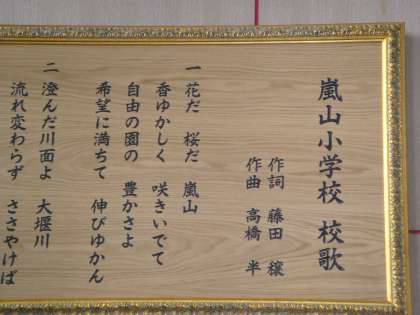 嵐山小学校 校歌
作詞 藤田 穣
作曲 高橋 半
一 花だ 桜だ 嵐山
香ゆかしく 咲きいでて
自由の園の 豊かさよ
希望に満ちて 伸びゆかん
二 澄んだ川面よ 大堰川
流れ変わらず ささやけば